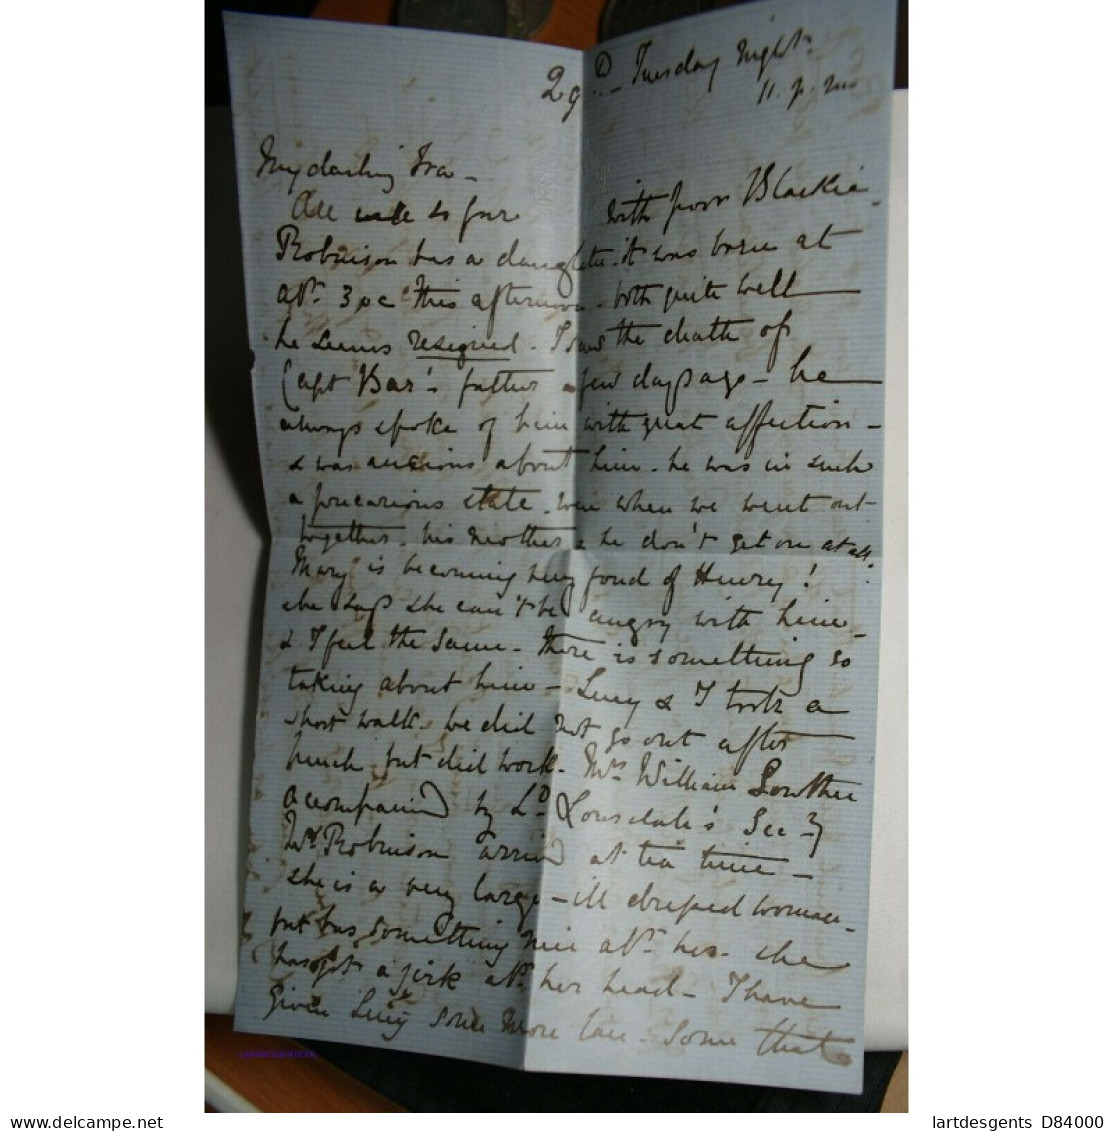 29 Tuesday night
11. p. m
My darling
All well so far with poor Blackie.
Robinson has a daughter. it was born at
abt. 3 oc this afternoon. both quite well
he seems resigned. I saw the death of
Capt Bar's father a few days ago - he
always spoke of him with great affection -
& was anxious about him. he was in such
a precarious state. even when we went out
together. his mother & he don't get on at all.
Mary is becoming very fond of Henry!
she says she can't be angry with him -
& I feel the same. There is something so
taking about him - Lucy & I took a
short walk. we did not go out after
lunch but did work. Mrs. William Lowther
accompanied by Ld. Lonsdale's Sec-y
Mr Robinson arrived at tea time -
she is a very large - ill draped woman.
but has something nice abt. her. she
has got a jerk abt. her head - I have
given Lucy some more lace. some that
LARTDESGENTS.FR
delcampe.net
lartdesgents D84000